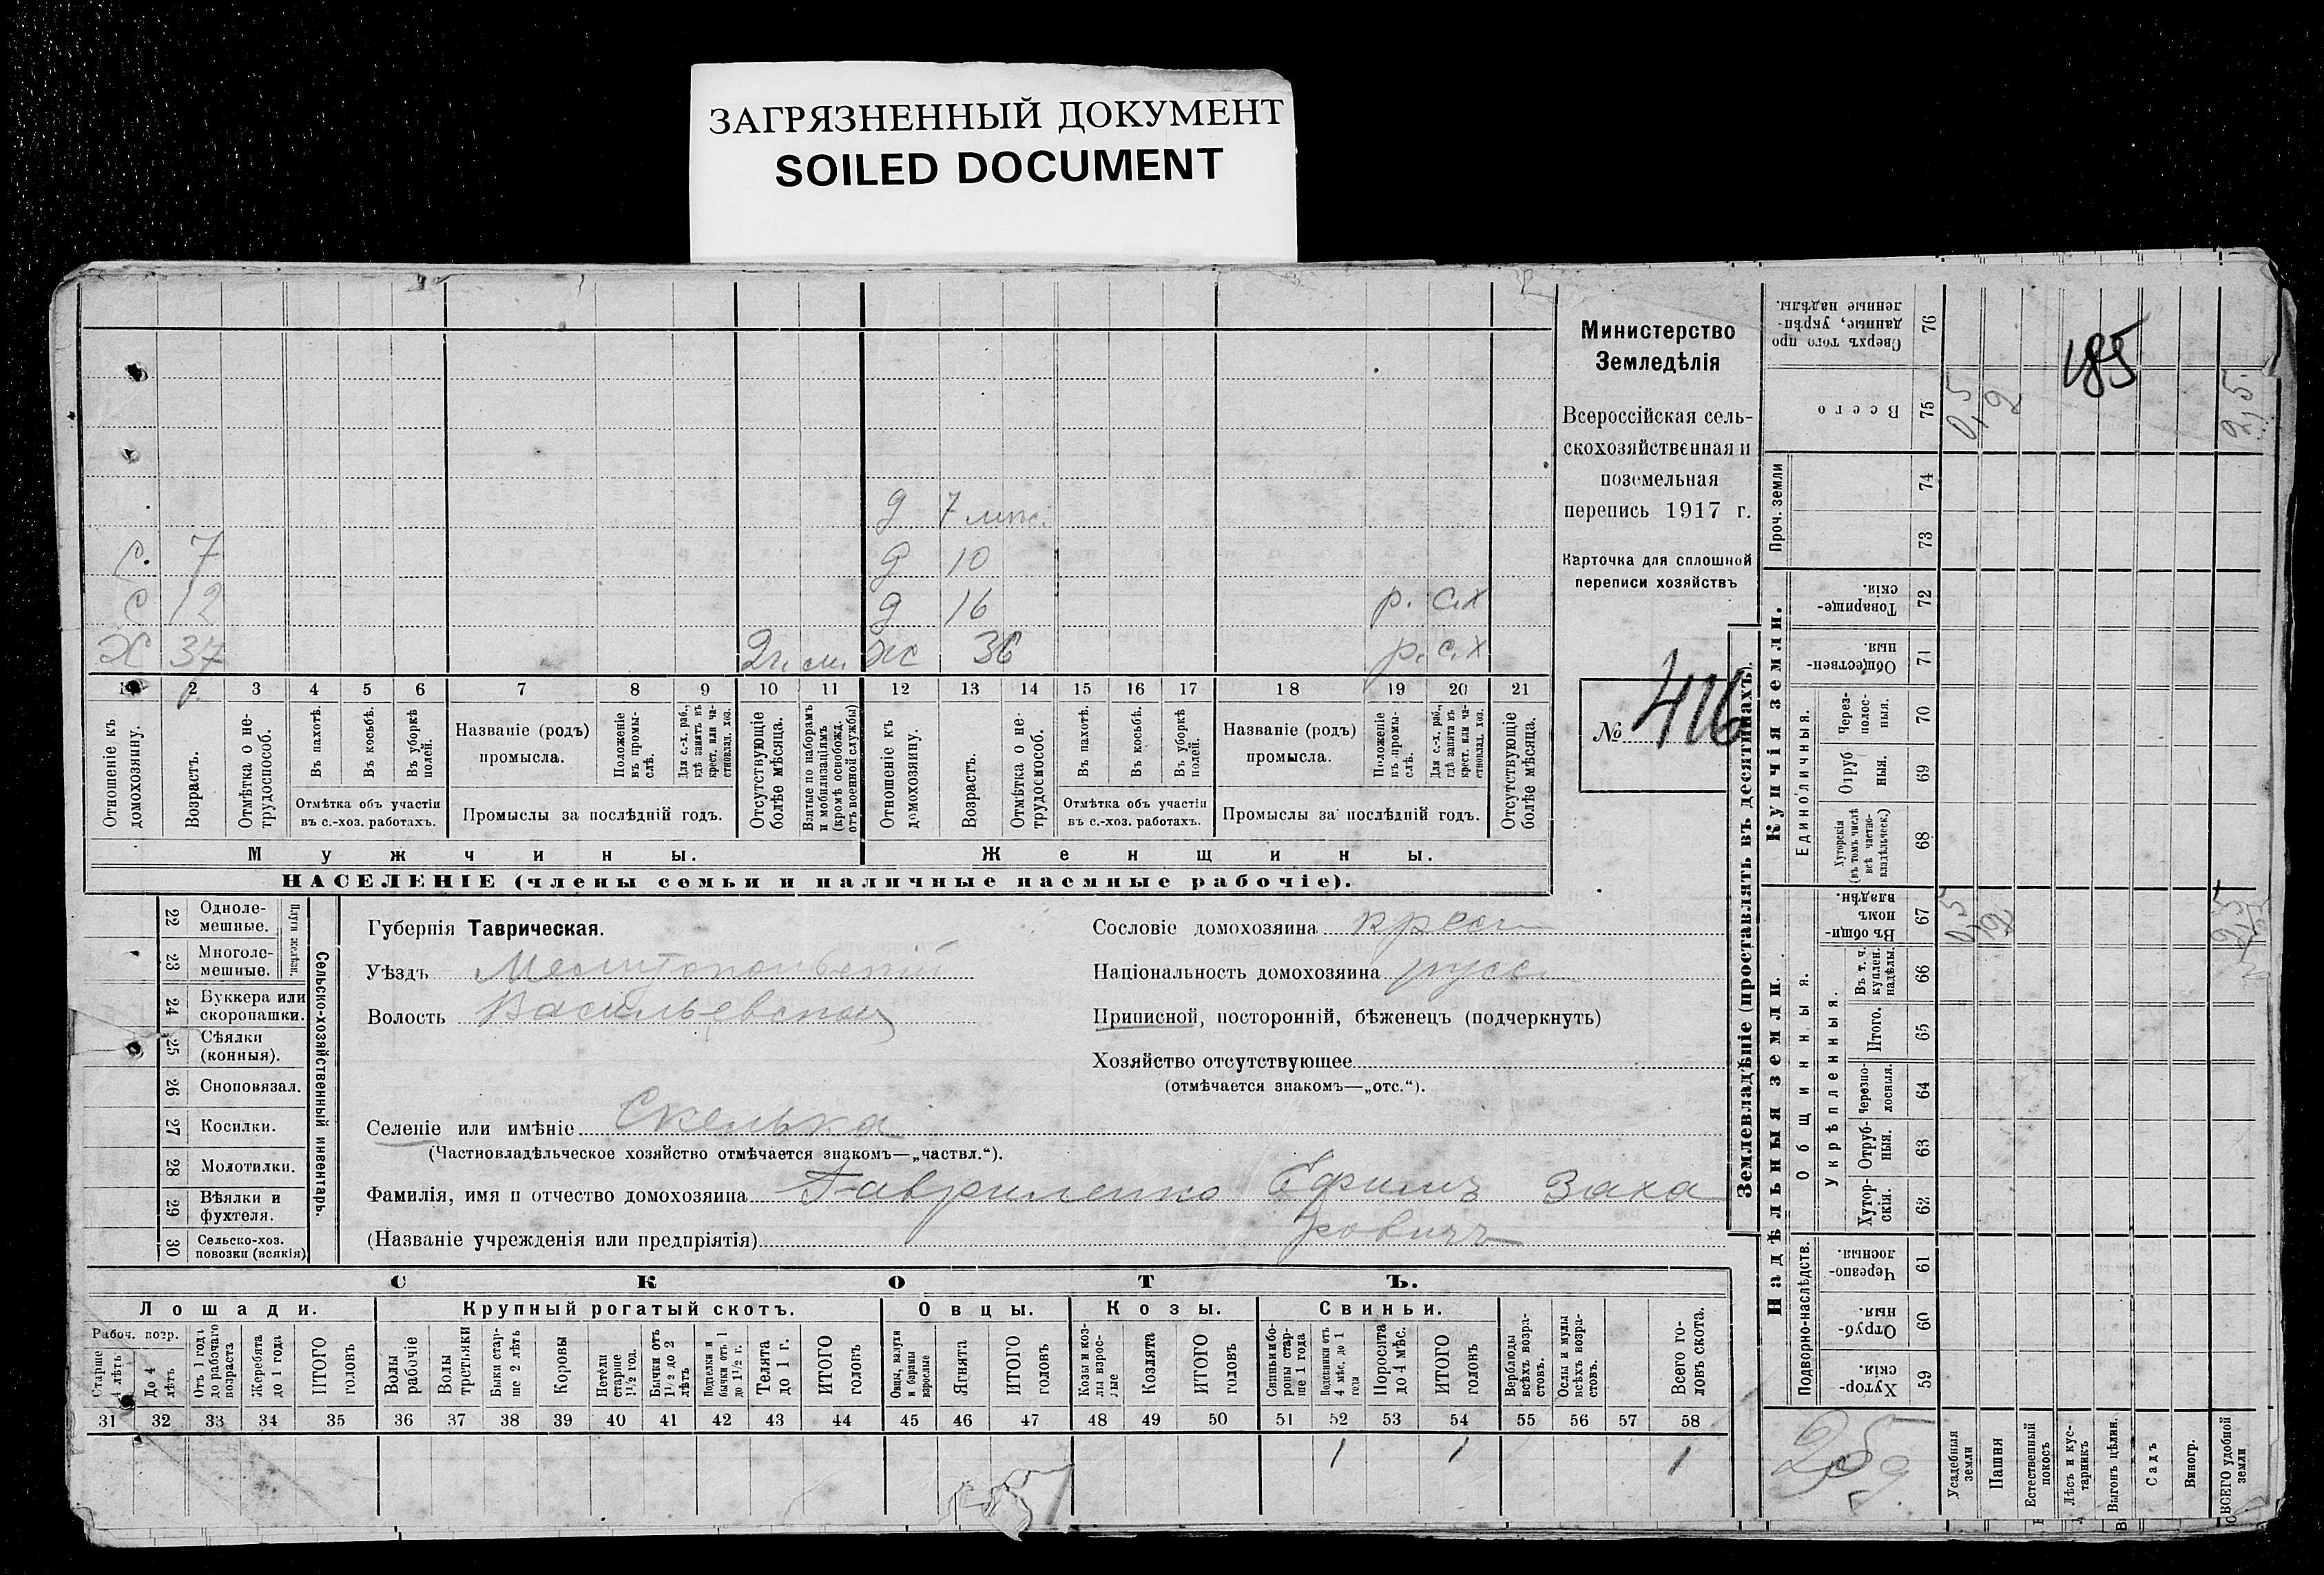 ЗАГРЯЗНЕННЫЙ ДОКУМЕНТ
SOILED DOCUMENT
д 7 мѣс.
с. 7 д 10
с 12 д 16 р. с.х
х 37 жс 36 р. с.х
1 2 3 4 5 6 7 8 9 10 11 12 13 14 15 16 17 18 19 20 21
Отношеніе къ домохозяину.
Возрастъ.
Отмѣтка о нетрудоспособ.
Въ пахотѣ.
Въ косьбѣ.
Въ уборкѣ полей.
Отмѣтка объ участіи
въ с.-хоз. работахъ.
Названіе (родъ)
промысла.
Положеніе въ промыслѣ.
Для с.-х. раб., гдѣ занятъ въ крест. или частновлад. хоз.
Промыслы за послѣдній годъ.
Отсутствующіе болѣе мѣсяца.
Взятые по наборамъ и мобилизаціямъ (кромѣ освобожд. отъ военной службы)
Отношеніе къ домохозяину.
Возрастъ.
Отмѣтка о нетрудоспособ.
Въ пахотѣ.
Въ косьбѣ.
Въ уборкѣ полей.
Отмѣтка объ участіи
въ с.-хоз. работахъ.
Названіе (родъ)
промысла.
Положеніе въ промыслѣ.
Для с.-х. раб., гдѣ занята въ крест. или частновлад. хоз.
Промыслы за послѣдній годъ.
Отсутствующіе болѣе мѣсяца.
Мужчины. Женщины.
НАСЕЛЕНІЕ (члены семьи и наличные наемные рабочіе).
Министерство
Земледѣлія
Всероссійская сель-
скохозяйственная и
поземельная
перепись 1917 г.
Карточка для сплошной
переписи хозяйствъ
№ 416
22 Одноле-
мешные.
23 Многоле-
мешные.
Плуги желѣзн.
24 Буккера или
скоропашки.
25 Сѣялки
(конныя).
26 Сноповязал.
27 Косилки.
28 Молотилки.
29 Вѣялки и
фухтеля.
30 Сельско-хоз.
повозки (всякія)
Сельско-хозяйственный инвентарь.
Губернія Таврическая.
Уѣздъ Мелитопольскій
Волость Васильевская
Селеніе или имѣніе Скелька
(Частновладѣльческое хозяйство отмѣчается знакомъ—„частвл.“).
Фамилія, имя и отчество домохозяина Гавриленко Ефимъ Заха
(Названіе учрежденія или предпріятія) ровичъ
Сословіе домохозяина крест
Національность домохозяина русс
Приписной, посторонній, бѣженецъ (подчеркнуть)
Хозяйство отсутствующее
(отмѣчается знакомъ—„отс.“).
СКОТЪ.
Лошади. Крупный рогатый скотъ. Овцы. Козы. Свиньи.
Рабоч. возр.
Старше 4 лѣтъ
До 4 лѣтъ
Отъ 1 года до рабочаго возраста
Жеребята до 1 года
ИТОГО головъ
Волы рабочіе
Волы третьяки
Быки старше 2 лѣтъ
Коровы
Нетели старше 1½ год.
Бычки отъ 1½ до 2 лѣтъ
Подтелки и бычки отъ 1 до 1½ г.
Телята до 1 г.
ИТОГО головъ
Овцы, валухи и бараны взрослые
Ягнята
ИТОГО головъ
Козы и козлы взрослые
Козлята
ИТОГО головъ
Свиньи и боровы старше 1 года
Подсвинки отъ 4 мѣс. до 1 года
Поросята до 4 мѣс.
ИТОГО головъ
Верблюды всѣхъ возрастовъ.
Ослы и мулы всѣхъ возрастовъ.
Всего головъ скота.
31 32 33 34 35 36 37 38 39 40 41 42 43 44 45 46 47 48 49 50 51 52 53 54 55 56 57 58
1 1 1
Землевладѣніе (проставлять въ десятинахъ).
Надѣльныя земли. Купчія земли. Проч. земли
Подворно-наслѣдств. Общинныя. Единоличныя.
Укрѣпленныя.
Хуторскія. 59
Отрубныя. 60
Черезполосныя. 61
Хуторскія. 62
Отрубныя. 63
Черезполосныя. 64
Итого. 65
Въ т. ч. куплен. надѣлы 66
Въ общинномъ владѣн. 67
Хуторскія (въ томъ числѣ всѣ частновладѣльческ.) 68
Отрубныя. 69
Черезполосныя. 70
Общественныя. 71
Товарищескія. 72
73
74
Всего 75
Сверхъ того проданные, укрѣпленные надѣлы. 76
Усадебныя земли 0,5 0,5
Пашня 2 2
Естественный покосъ
Лѣсъ и кустарникъ
Выгонъ цѣлин.
Садъ
Виногр.
ВСЕГО удобной земли 2,5 2,5
185